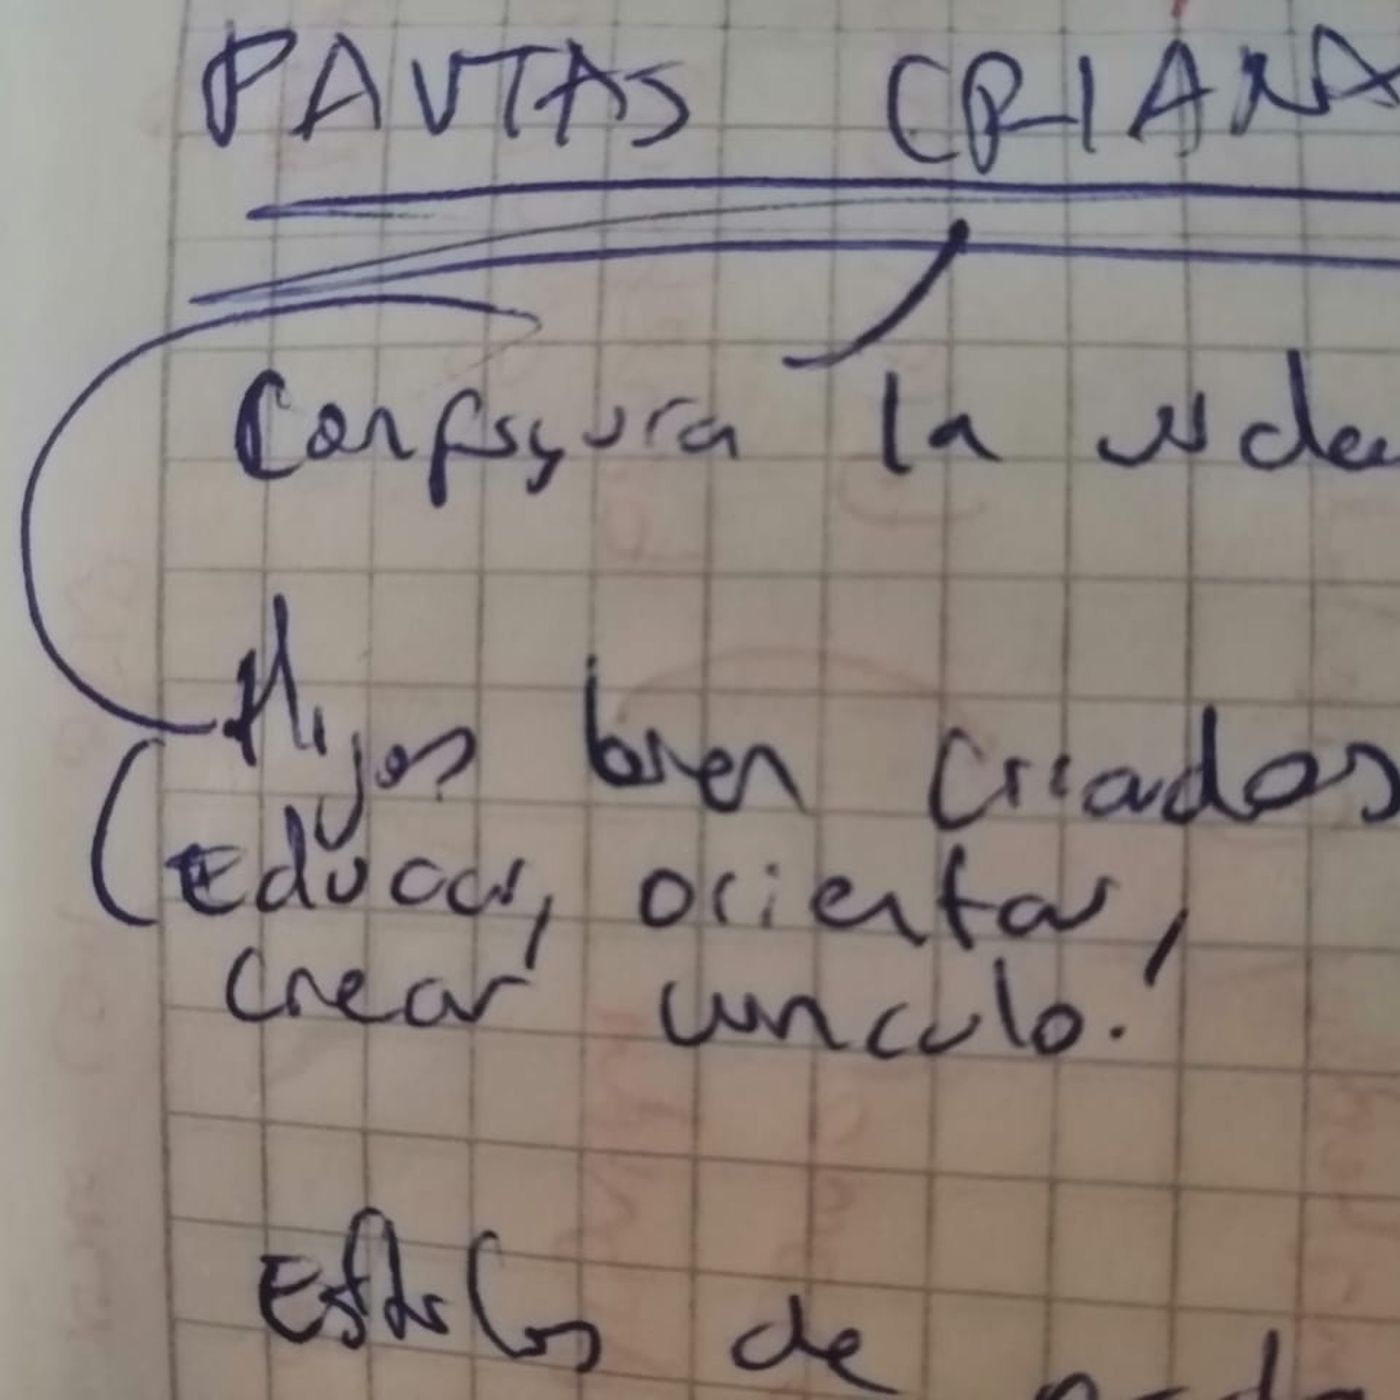 PAUTAS CRIANZA
Configura la
Hijos bien criados
Educar, orientar,
crear vinculo.
Estilos de